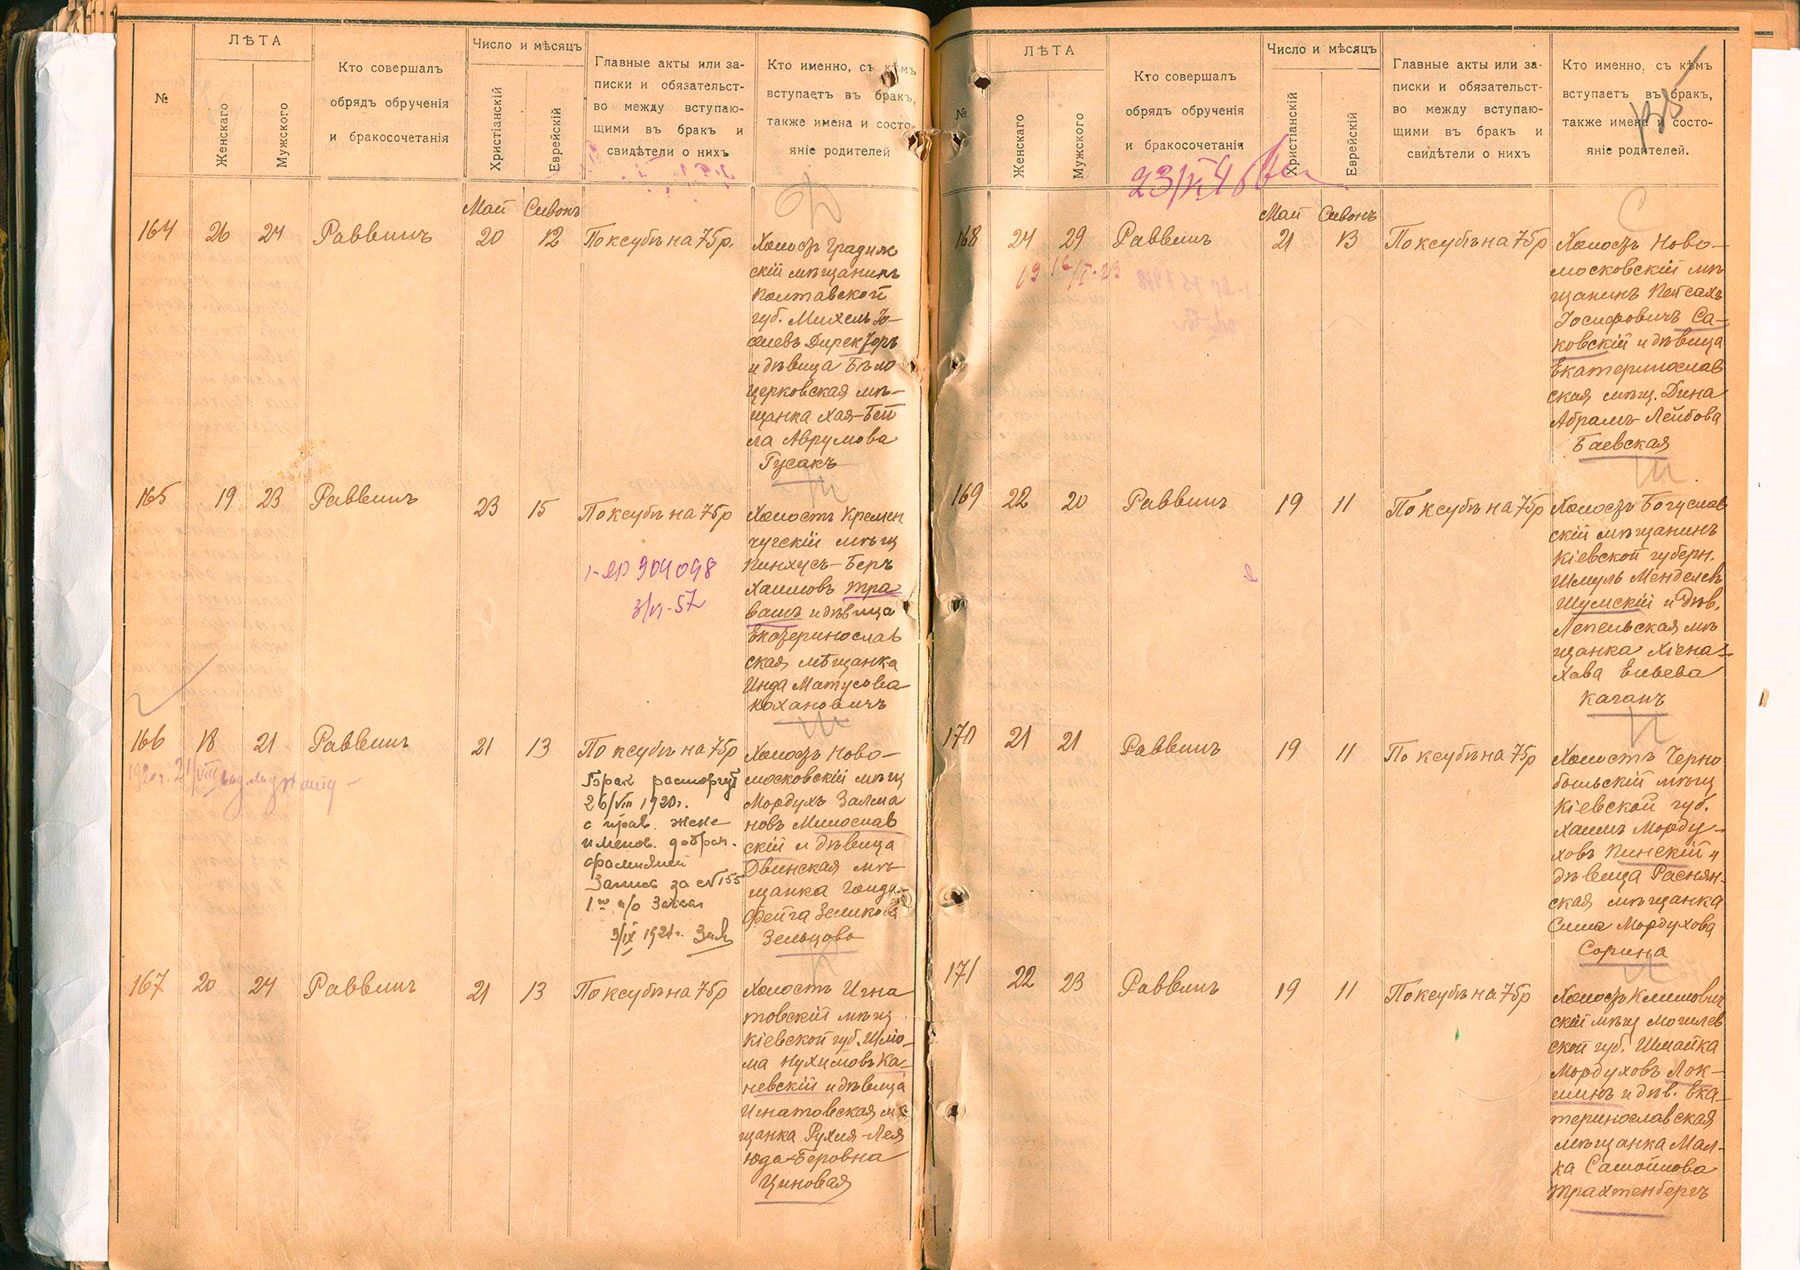 №
ЛѢТА
Женскаго
Мужского
Кто совершалъ
обрядъ обрученія
и бракосочетанія
Число и мѣсяцъ
Христіанскій
Еврейскій
Главные акты или за-
писки и обязательст-
во между вступаю-
щими въ бракъ и
свидѣтели о нихъ
Кто именно, съ кѣмъ
вступаетъ въ бракъ,
также имена и состо-
яніе родителей
Май Сивонъ
164 26 24 Раввинъ 20 12 По ксубѣ на 75 р.
Холостъ Градиж
скій мѣщанинъ
Полтавской
губ. Михель Іо-
Директоръ
и дѣвица Бѣло
церковская мѣ-
щанка Хая-Бей
ла Аврумова
Гусакъ
165 19 23 Раввинъ 23 15 По ксубѣ на 75 р
I-ЯР 904098
3/VI-57
Холостъ Кремен
чугскій мѣщ
Пинхусъ-Беръ
Хаимовъ Тра
вашъ и дѣвица
Екатеринослав
ская мѣщанка
Инда Матусова
Кохановичъ
166 18 21 Раввинъ 21 13 По ксубѣ на 75 р
Брак расторгнут
26/VIII 1920г.
с прав. жене
именов. добрач.
фамилией
Запись за №155
3/IX 1921г.
Холостъ Ново-
московскій мѣщ
Мордухъ Залма
новъ Милослав
скій и дѣвица
Двинская мѣ-
щанка Гольда-
Фейга Зеликова
Зельцова
167 20 24 Раввинъ 21 13 По ксубѣ на 75 р
Холостъ Игна
товскій мѣщ
Кіевской губ. Шліо-
ма Нухимовъ Ка-
невскій и дѣвица
Игнатовская мѣ
щанка Рухля-Лея
Юда-Беровна
Циновая
№
ЛѢТА
Женскаго
Мужского
Кто совершалъ
обрядъ обрученія
и бракосочетанія
Число и мѣсяцъ
Христіанскій
Еврейскій
Главные акты или за-
писки и обязательст-
во между вступаю-
щими въ бракъ и
свидѣтели о нихъ
Кто именно, съ кѣмъ
вступаетъ въ бракъ,
также имена и состо-
яніе родителей.
Май Сивонъ
168 24 29 Раввинъ 21 13 По ксубѣ на 75 р
Холостъ Ново-
московскій мѣ
щанинъ Пейсахъ
Іосифовичъ Са-
ковскій и дѣвица
Екатеринослав
ская мѣщ. Дина
Абрамъ-Лейбова
Баевская
169 22 20 Раввинъ 19 11 По ксубѣ на 75 р
Холостъ Богуслав
скій мѣщанинъ
Кіевской губерн.
Шмуль Менделевъ
Шумскій и дѣв.
Лепельская мѣ
щанка Хіена-
Хава Ельева
Каганъ
170 21 21 Раввинъ 19 11 По ксубѣ на 75 р
Холостъ Черно
быльскій мѣщ
Кіевской губ.
Хаимъ Морду-
ховъ Пинскій и
дѣвица Раснян-
ская мѣщанка
Мордухова
Сорина
171 22 23 Раввинъ 19 11 По ксубѣ на 75 р
Холостъ Климович
скій мѣщ Могилев
ской губ. Шмайка
Мордуховъ Лок-
шинъ и дѣв. Ека-
теринославская
мѣщанка Мал-
ка Самойлова
Трахтенбергъ